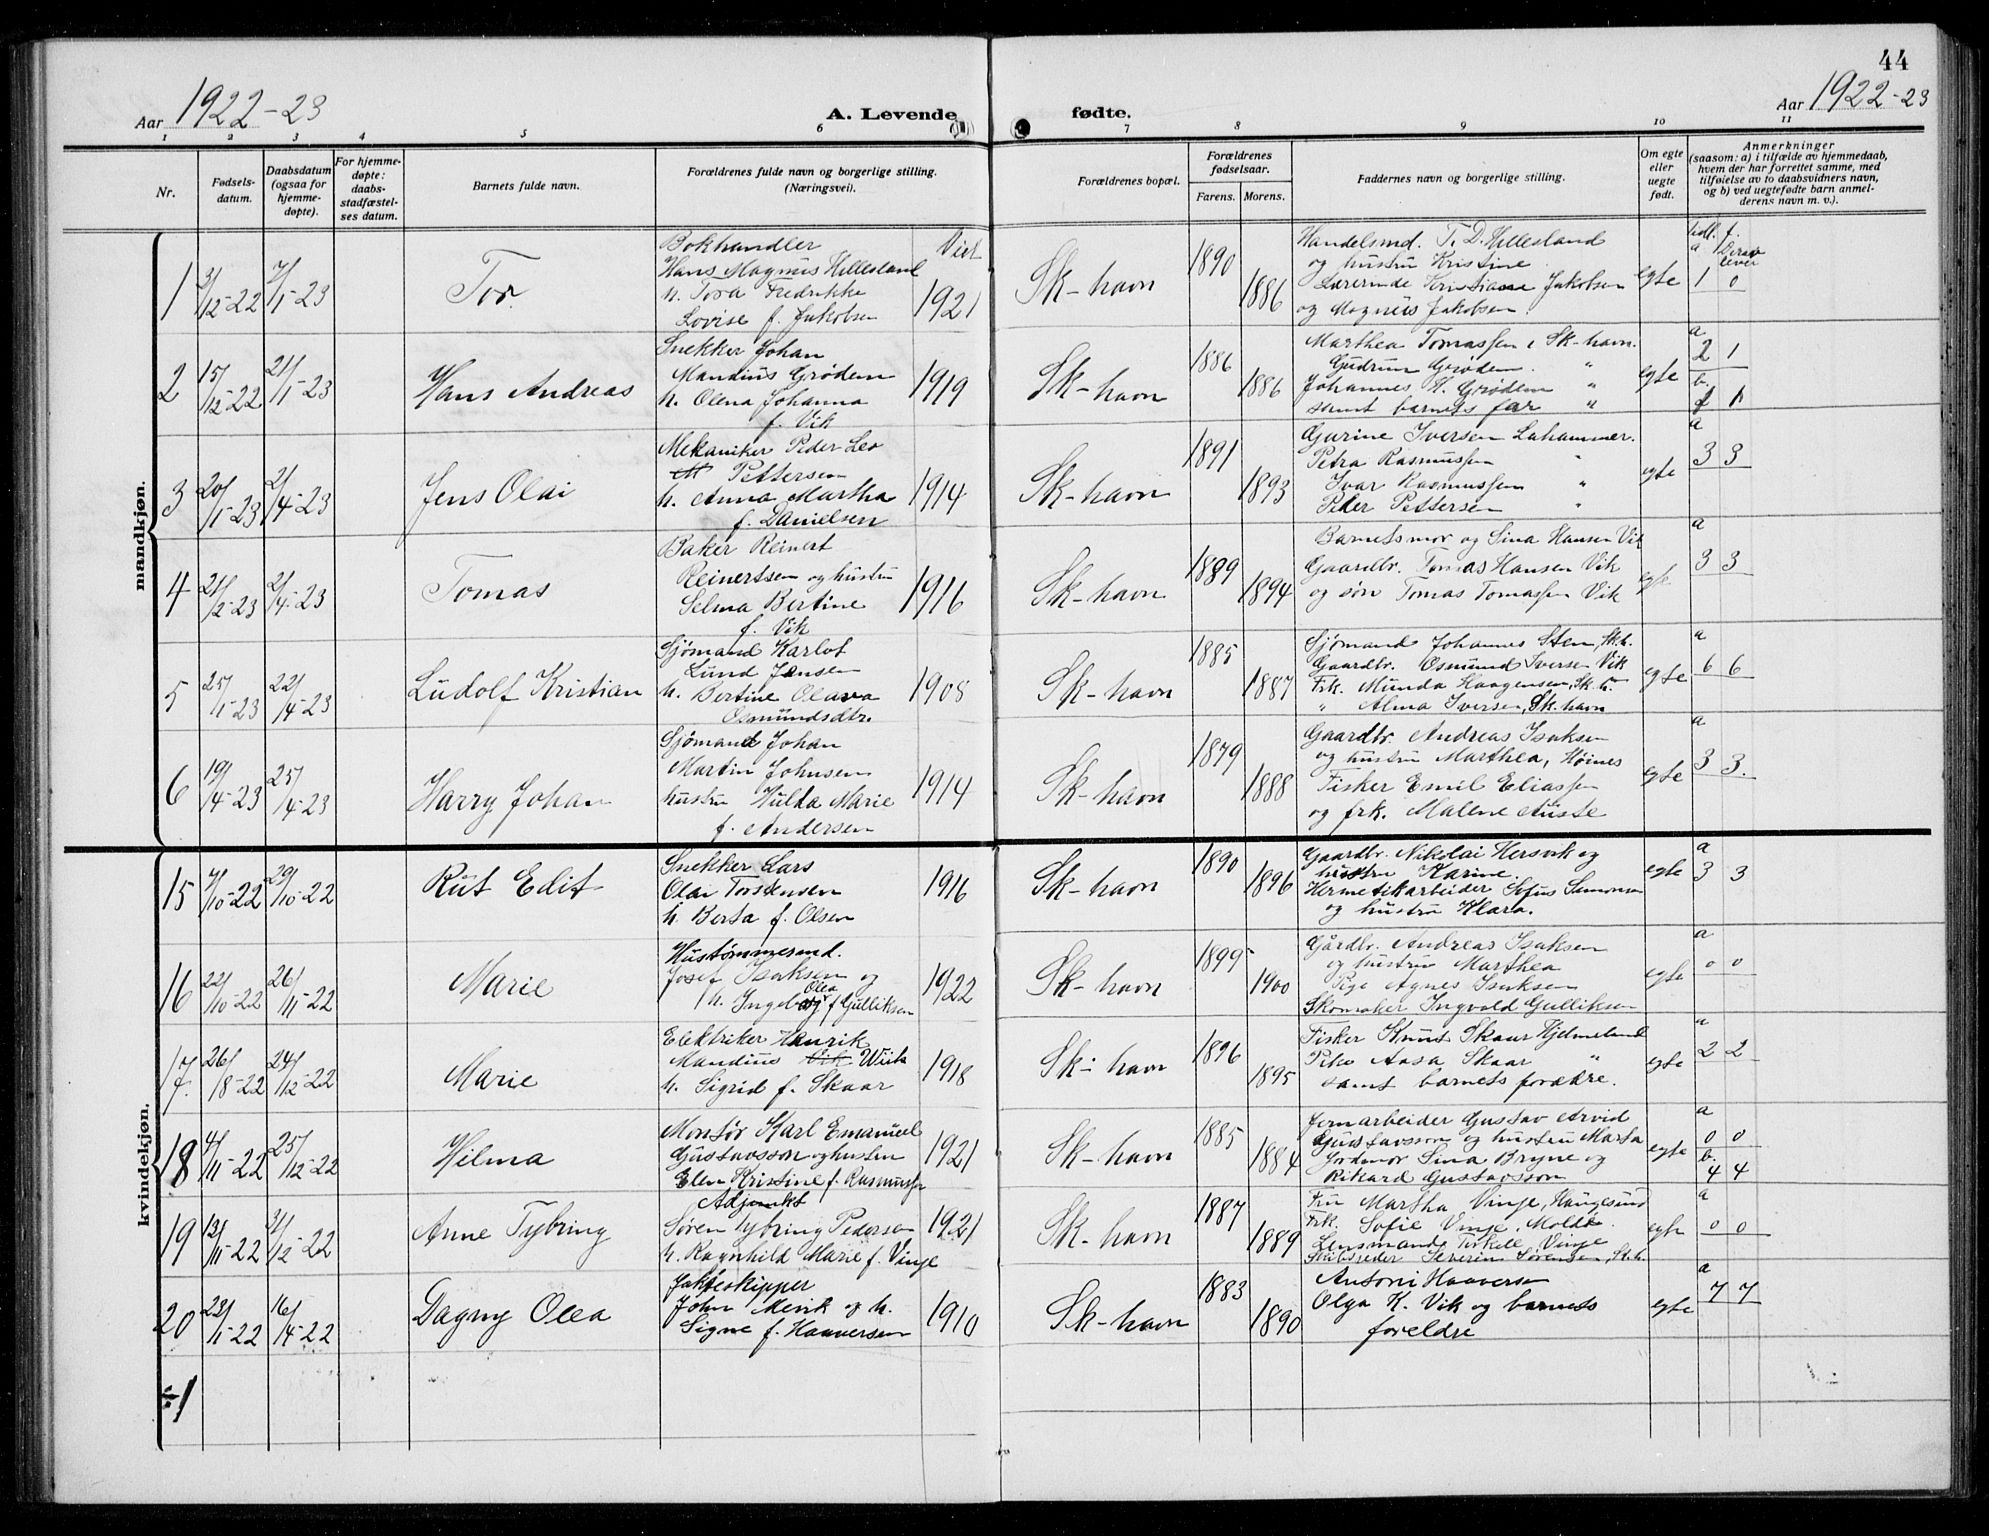 44
Aar 1922-23
A. Levende fødte.
Aar 1922-23
1 2 3 4 5 6 7 8 9 10 11
Nr.
Fødsels-
datum.
Daabsdatum
(ogsaa for
hjemme-
døpte).
For hjemme-
døpte:
daabs-
stadfæstel-
ses datum.
Barnets fulde navn.
Forældrenes fulde navn og borgerlige stilling.
(Næringsvei).
Forældrenes bopæl.
Forældrenes
fødselsaar.
Farens. Morens.
Faddernes navn og borgerlige stilling.
Om egte
eller
uegte
født.
Anmerkninger
(saasom: a) i tilfælde av hjemmedaab,
hvem der har forrettet samme, med
tilføielse av to daabsvidners navn,
og b) ved uegtefødte barn anmel-
derens navn m. v.).
mandkjøn.
1 3/12-22 7/1-23 Tor.
Bokhandler
Hans Magnus Hillesland
h. Tora Fredrikke
Lovise f. Jakobsen
Viet 1921
Sk-havn 1890 1886
Handelsmd. T. D. Hillesland
og hustru Kristine
Lærerinde Kristiane Jakobsen
og Magnus Jakobsen
egte
tidl. f. a 1
Derav lever 0
2 15/12-22 21/1-23 Hans Andreas
Snekker Johan
Mandius Grødem
h. Olena Johanna
f. Vik
1919
Sk-havn 1886 1886
Marthea Tomassen, Sk-havn.
Gudrun Grødem "
Johannes H. Grødem "
samt barnets far "
egte
a 2 1
b. 1 1
3 20/1-23 2/4-23 Jens Olai
Mekaniker Peder Leo
Pettersen
h. Anna Martha
f. Danielsen
1914
Sk-havn 1891 1893
Gurine Iversen Lahammer.
Petra Rasmussen "
Ivar Rasmussen "
Peder Pettersen "
egte
a 3 3
4 21/2-23 2/4-23 Tomas
Baker Reinert
Reinertsen og hustru
Selma Bertine
f. Vik
1916
Sk-havn 1889 1894
Barnetsmor og Sina Hansen Vik
Gaardbr. Tomas Hansen Vik
og søn Tomas Tomassen Vik
egte
a 3 3
5 25/1-23 22/4-23 Ludolf Kristian
Sjømand Karlot
Lund Jensen
h. Bertine Olava
Osmundsdtr.
1908
Sk-havn 1885 1887
Sjømand Johannes Sten, Sk.h.
Gaardbr. Osmund Iversen Vik
Frk. Munda Haagensen, Sk.h.
" Alma Iversen, Sk.havn
egte
a 6 6
6 19/4-23 25/4-23 Harry Johan
Sjømand Johan
Martin Johnsen
hustru Hulda Marie
f. Andersen
1914
Sk-havn 1879 1888
Gaardbr. Andreas Isaksen
og hustru Marthea, Høines
Fisker Emil Eliassen
og frk. Malene Auste
egte
a 3 3.
kvindekjøn.
15 7/10-22 29/10-22 Rut Edit
Snekker Lars
Olai Torstensen
h. Berta f. Olsen
1916
Sk-havn 1890 1896
Gaardbr. Nikolai Hersvik og
hustru Karine.
Hermetikarbeider Sofus Samonsen
og hustru Klara.
egte
a 3 3
16 22/10-22 26/11-22 Marie
Hustømmermd.
Josef Isaksen og
h. Ingeborg Olea f Gulliksen
1922
Sk-havn 1899 1900
Gårdbr. Andreas Isaksen
og hustru Marthea
Pige Agnes Isaksen
Skomaker Ingvald Gulliksen
egte
a 0 0
17. 26/8-22 24/12-22 Marie
Elektriker Henrik
Mandius Wiik
h. Sigrid f. Skaar
1918
Sk-havn 1896 1895
Fisker Knut Skaar Hjelmeland
Pike Aasa Skaar "
samt barnets forældre.
egte
a 2 2
18 4/11-22 25/12-22 Hilma
Montør Karl Emanuel
Gustavsson og hustru
Elen Kristine f. Rasmussen
1921
Sk-havn 1885 1884
Jernarbeider Gustav Arvid
Gustavsson og hustru Marta
Jordmor Sina Bryne og
Rikard Gustavsson
egte
a 0 0
b. 4 4
19 13/11-22 31/12-22 Anne Tybring
Adjunkt
Søren Tybring Pedersen
h. Ragnhild Marie f. Vinje
1921
Sk-havn 1887 1889
Fru Martha Vinje, Haugesund
Frk. Sofie Vinje, Molde.
Lensmand Tirkell Vinje
Skibsreder Severin Sørensen, Sk.h.
egte
a 0 0
20 23/1-22 16/4-22 Dagny Olea
Jakteskipper
John Mevik og h.
Signe f. Haaversen
1910
Sk-havn 1883 1890
Antoni Haaversen
Olga K. Vik og barnets
foreldre
egte
a 7 7
÷1